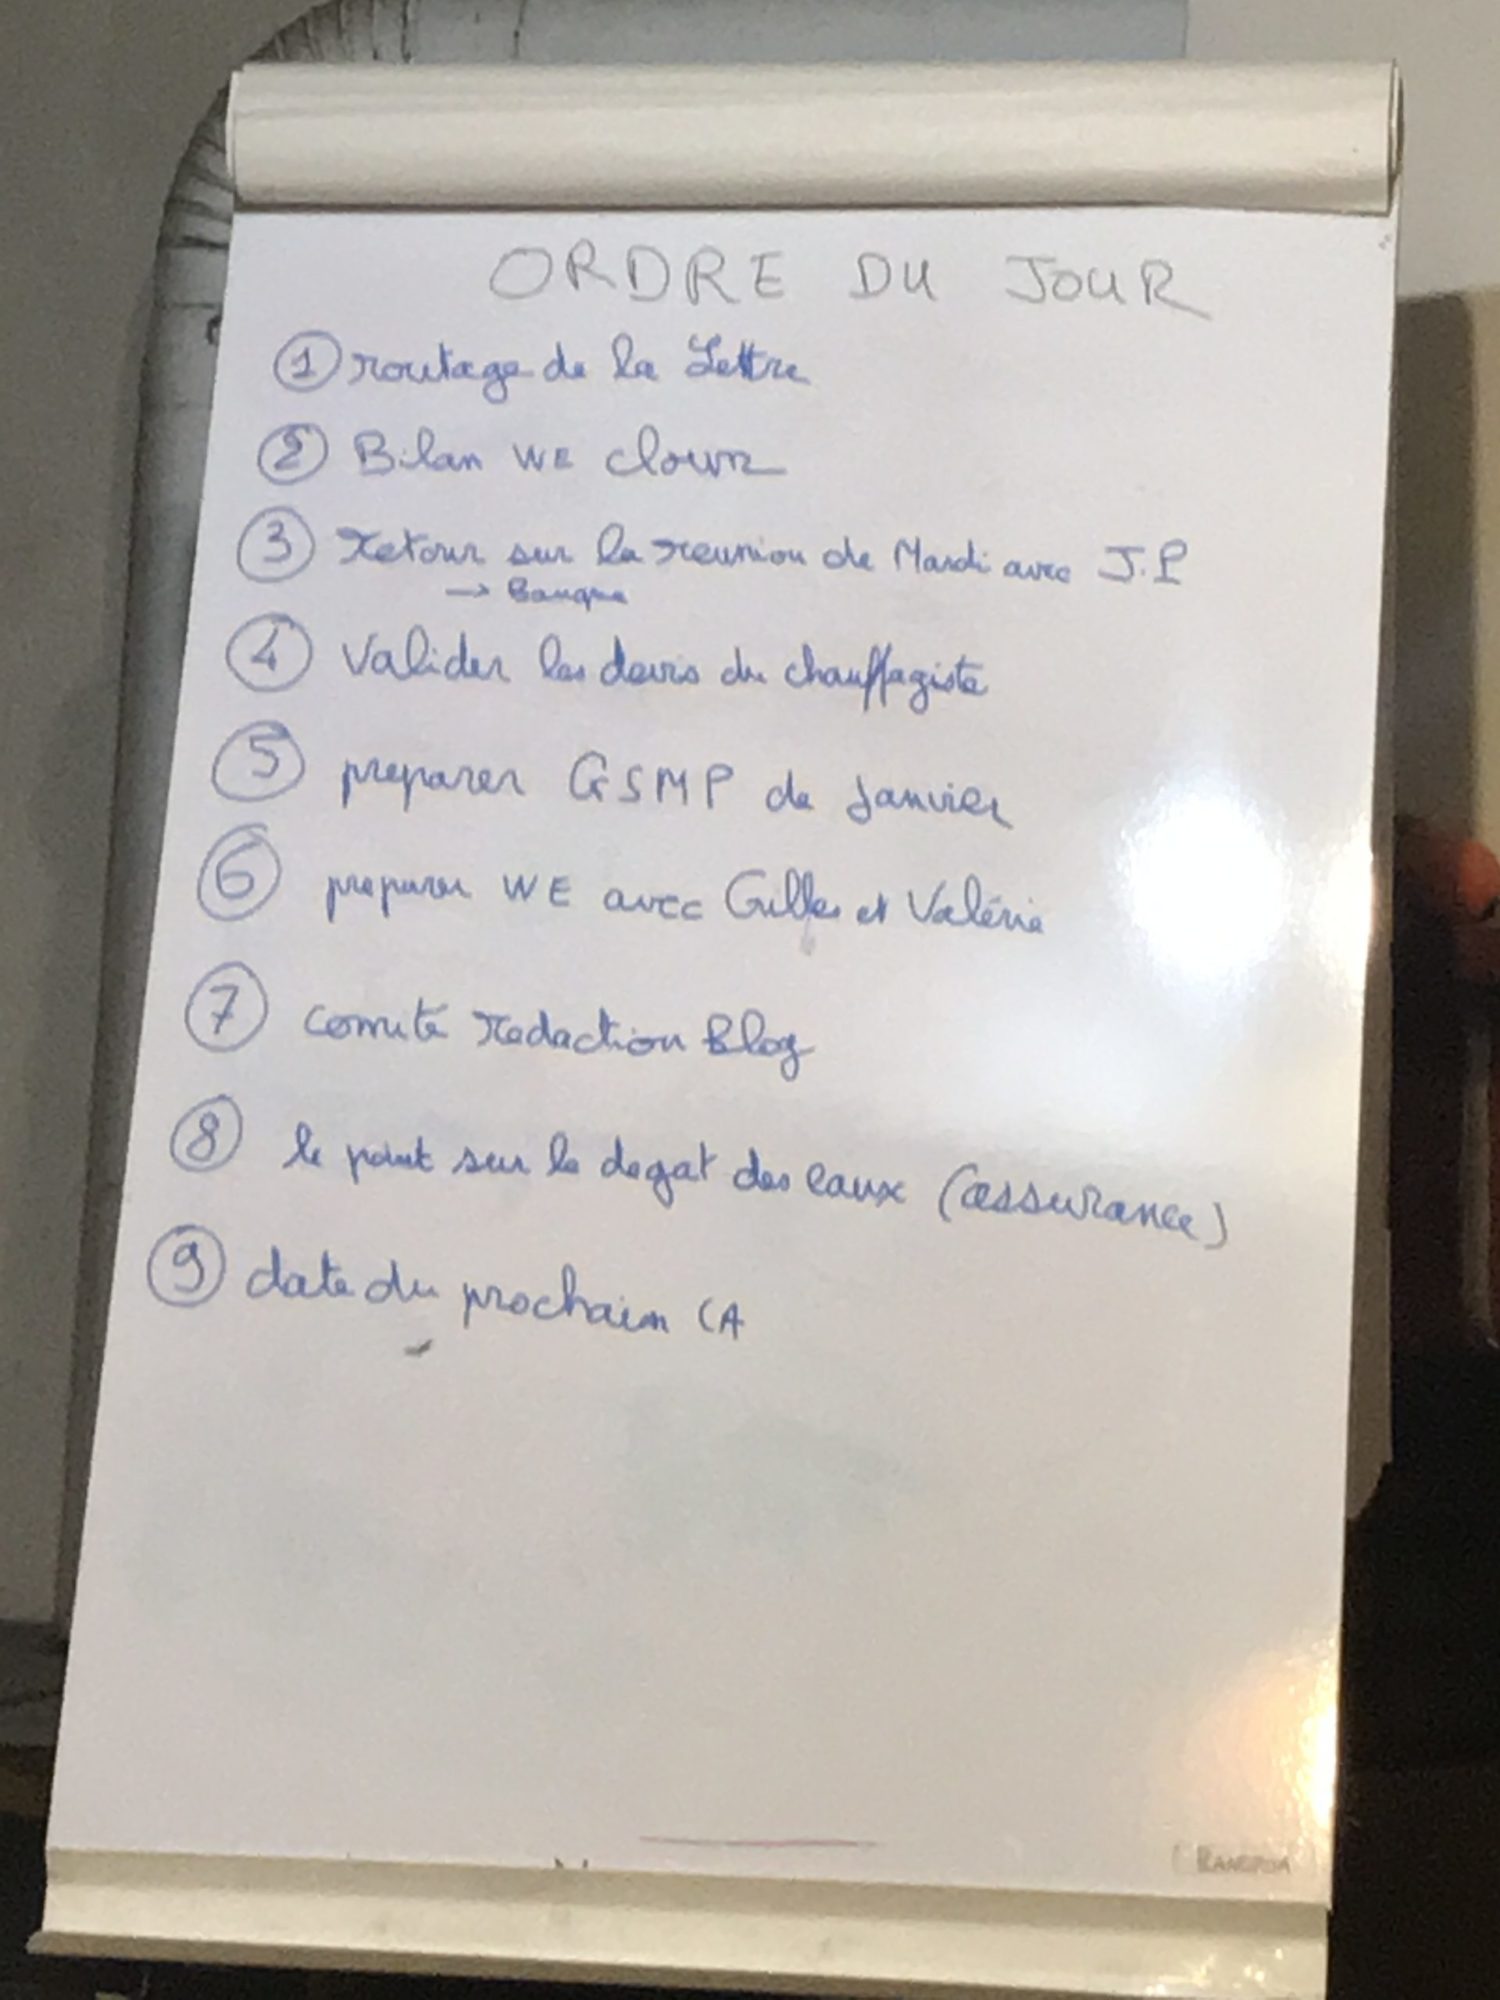 ORDRE DU JOUR
1 routage de la Lettre
2 Bilan WE clown
3 retour sur la reunion de Mardi avec J.P
→ Banque
4 Valider les devis du chauffagiste
5 preparer GSMP de Janvier
6 preparer WE avec Gilles et Valérie
7 comité redaction Blog
8 le point sur le degat des eaux (assurance)
9 date du prochain CA